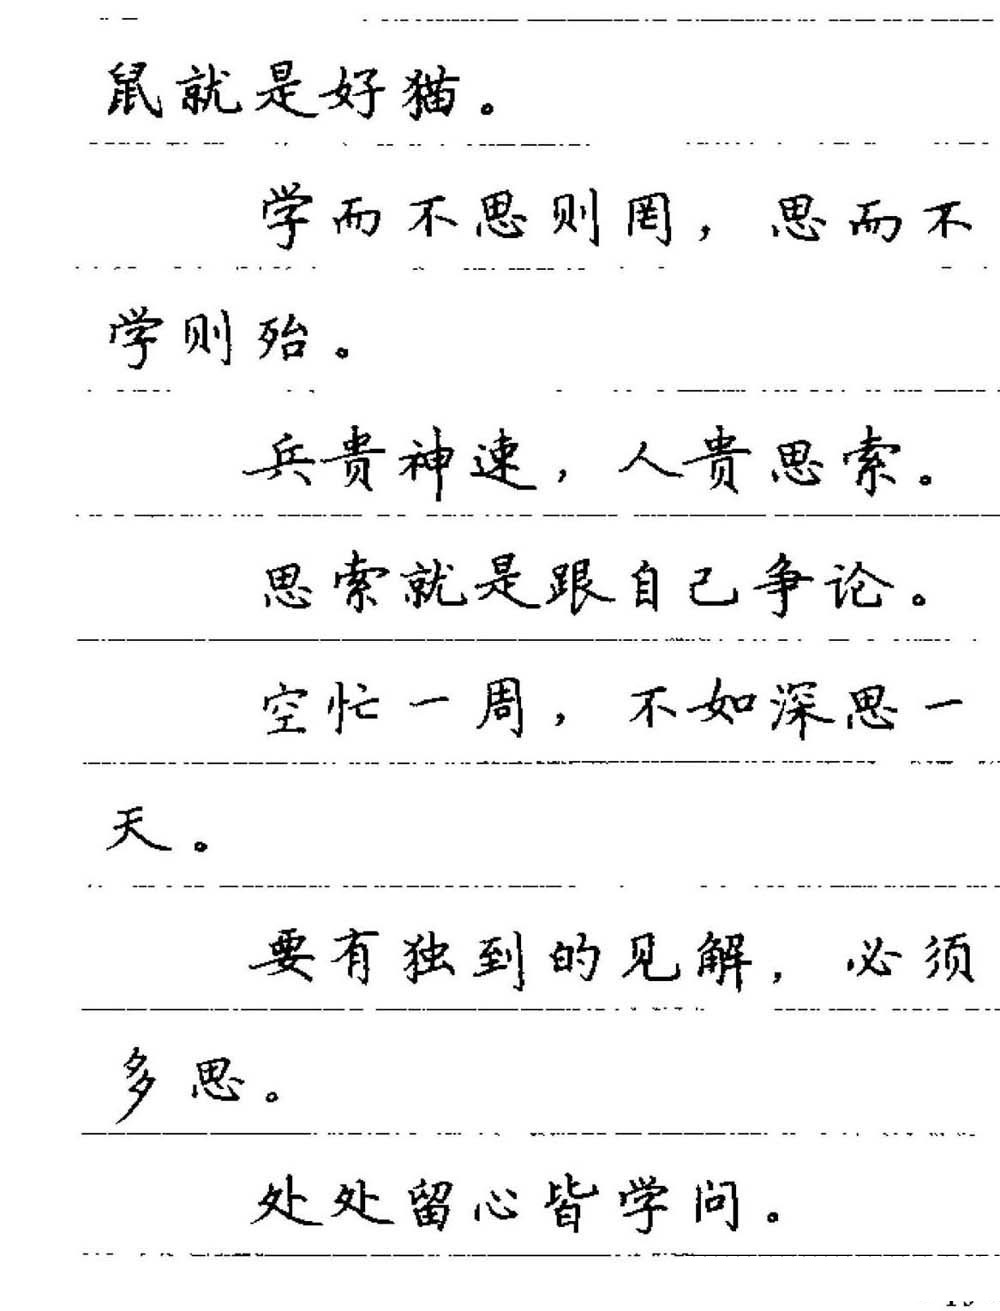 鼠就是好猫。
学而不思则罔，思而不
学则殆。
兵贵神速，人贵思索。
思索就是跟自己争论。
空忙一周，不如深思一
天。
要有独到的见解，必须
多思。
处处留心皆学问。